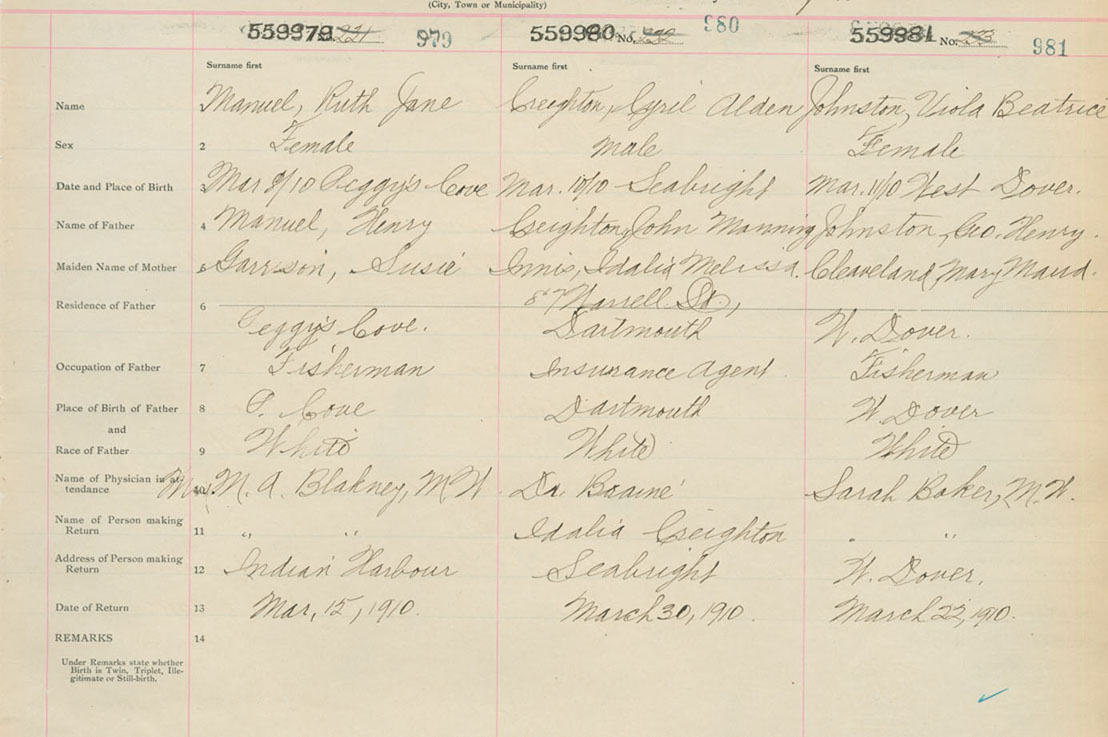 (City, Town or Municipality)
559979 No. 221 979 559980 No. 222 980 559981 No. 223 981
Surname first Surname first Surname first
Name Manuel, Ruth Jane Creighton, Cyril Alden Johnston, Viola Beatrice
Sex 2 Female Male Female
Date and Place of Birth 3 Mar 8/10 Peggy's Cove Mar. 10/10 Seabright Mar. 11/10 West Dover.
Name of Father 4 Manuel, Henry Creighton, John Manning Johnston, Geo. Henry.
Maiden Name of Mother 5 Garrison, Susie Innis, Idalia Melissa. Cleaveland, Mary Maud.
87 St.,
Residence of Father 6
Peggy's Cove. Dartmouth W. Dover.
Occupation of Father 7 Fisherman Insurance Agent Fisherman
Place of Birth of Father 8 P. Cove Dartmouth W Dover
and
Race of Father 9 White White White
Name of Physician in at-
tendance 10 Mrs. M. A. Blakney, M.W. Dr. Braine Sarah Baker, M.W.
Name of Person making
Return 11 " " Idalia Creighton " "
Address of Person making
Return 12 Indian Harbour Seabright W. Dover.
Date of Return 13 Mar, 15, 1910. March 30, 1910. March 22, 1910.
REMARKS 14
Under Remarks state whether
Birth is Twin, Triplet, Ille-
gitimate or Still-birth.